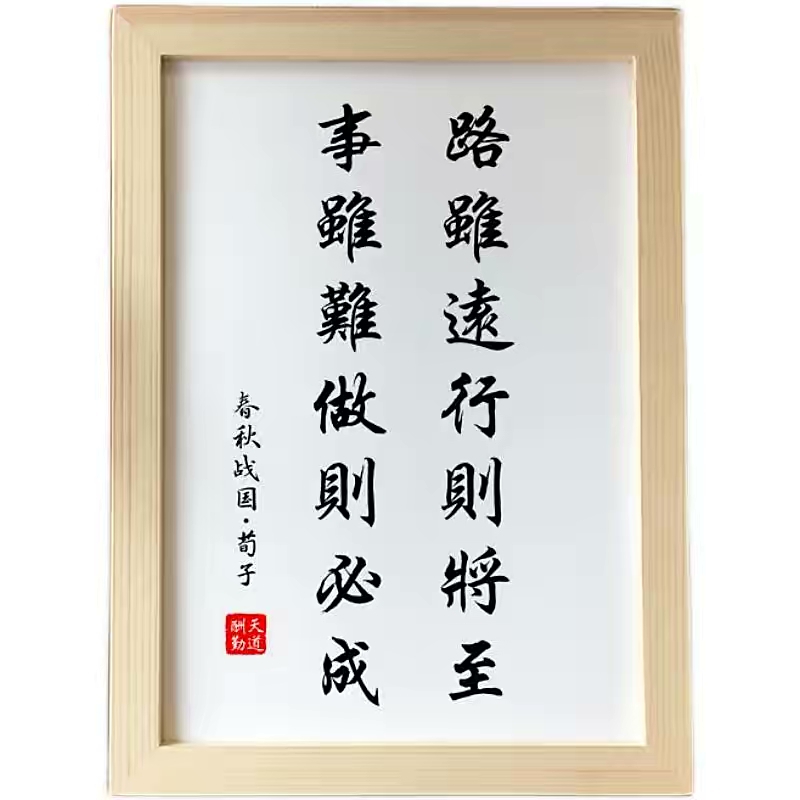 路雖遠行則將至
事雖難做則必成
春秋战国·荀子
天道酬勤